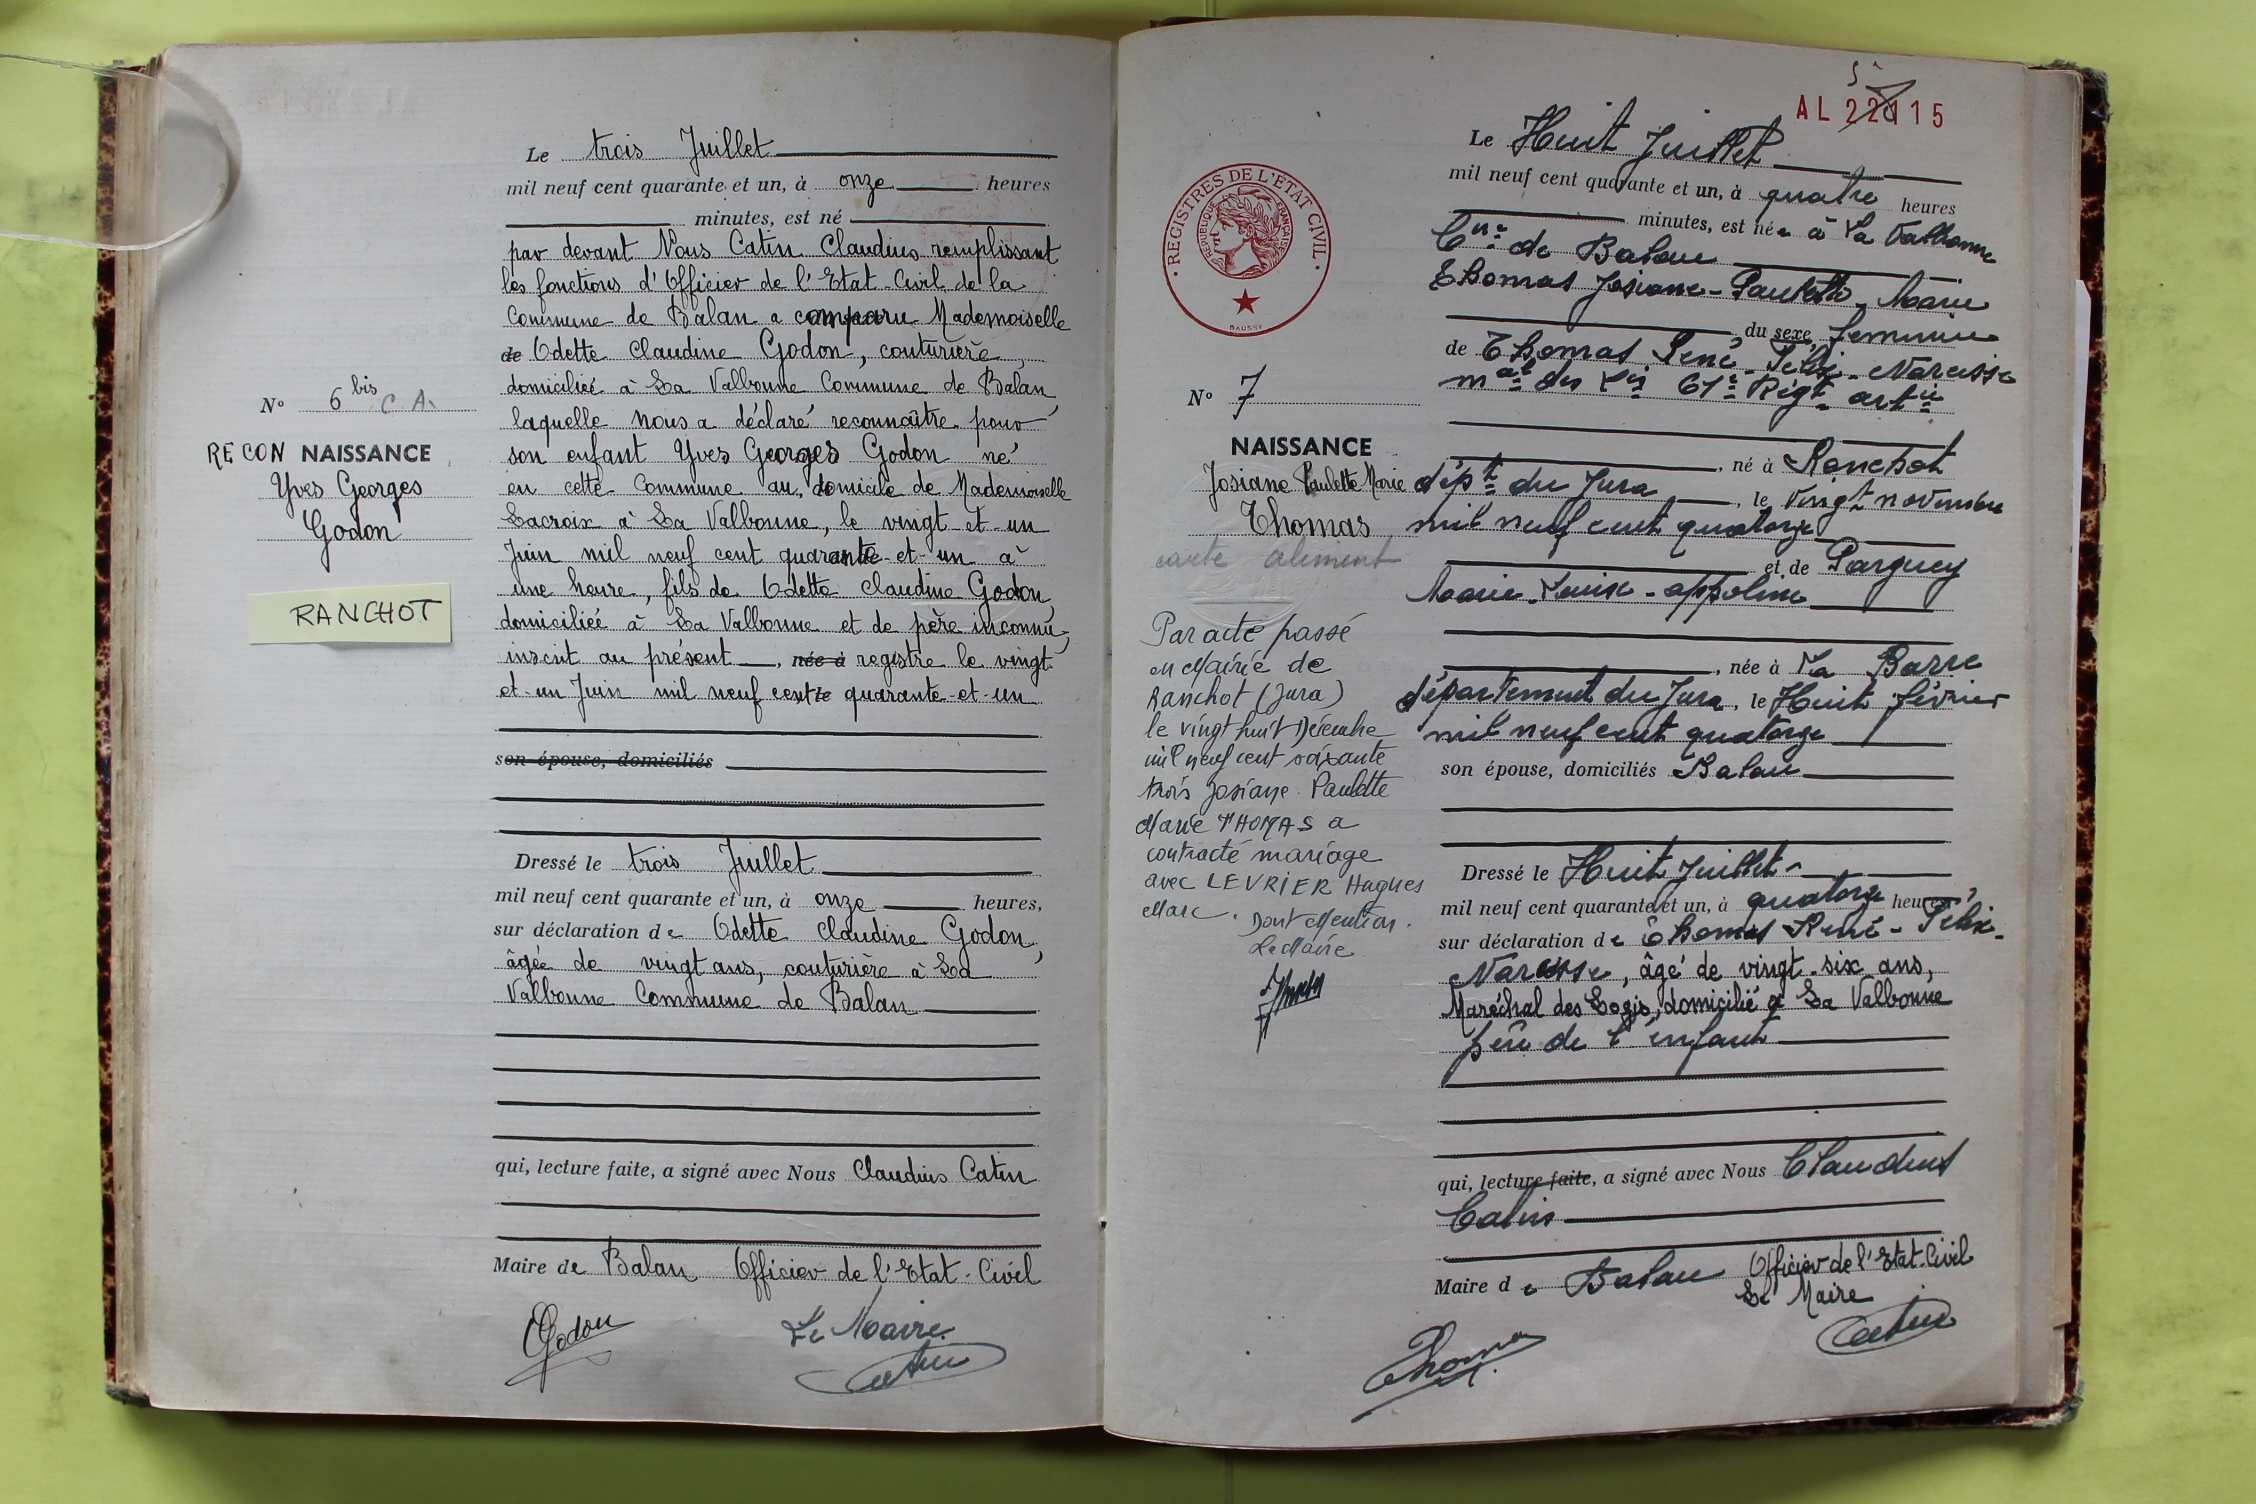 Le trois Juillet
mil neuf cent quarante et un, à onze heures
minutes, est né
par devant Nous Catin Claudius remplissant
les fonctions d'Officier de l'Etat-Civil de la
Commune de Balan a comparu Mademoiselle
de Odette Claudine Godon, couturière,
domiciliée à La Valbonne Commune de Balan,
laquelle nous a déclaré reconnaître pour
son enfant Yves Georges Godon né
en cette Commune au domicile de Mademoiselle
Lacroix à La Valbonne, le vingt-et-un
Juin mil neuf cent quarante-et-un à
une heure, fils de Odette Claudine Godon,
domiciliée à La Valbonne et de père inconnu,
inscrit au présent, née à registre le vingt
et-un Juin mil neuf cent le quarante-et-un
son épouse, domiciliés
Dressé le trois Juillet
mil neuf cent quarante et un, à onze heures,
sur déclaration de Odette Claudine Godon,
âgée de vingt ans, couturière à La
Valbonne Commune de Balan
qui, lecture faite, a signé avec Nous Claudius Catin
Maire de Balan Officier de l'Etat-Civil
Godon
Le Maire
Catin
N° 6 bis C.A.
RECONNAISSANCE
Yves Georges
Godon
RANCHOT
AL 22115
Le Huit Juillet
mil neuf cent quarante et un, à quatre heures
minutes, est née à La Valbonne
Cne de Balan
Thomas Josiane-Paulette-Marie
du sexe féminin
de Thomas René-Félix-Narcisse
mal des Lis 61e Régt artie
, né à Ranchot
dépt du Jura, le Vingt novembre
mil neuf cent quatorze
et de Parguey
Marie-Louise-Appoline
, née à La Barre
département du Jura, le Huit février
mil neuf cent quatorze
son épouse, domiciliés Balan
Dressé le Huit Juillet
mil neuf cent quarante et un, à quatorze heures,
sur déclaration de Thomas René-Félix-
Narcisse, âgé de vingt-six ans,
Maréchal des Logis, domicilié à La Valbonne
père de l'enfant
qui, lecture faite, a signé avec Nous Claudius
Catin
Maire de Balan Officier de l'Etat-Civil
Le Maire
Catin
Thomas
REGISTRES DE L'ETAT CIVIL
REPUBLIQUE FRANÇAISE
DAUSSY
N° 7
NAISSANCE
Josiane Paulette Marie
Thomas
carte aliment
Par acte passé
en Mairie de
Ranchot (Jura)
le vingt huit Décembre
mil neuf cent soixante
trois Josiane Paulette
Marie THOMAS a
contracté mariage
avec LEVRIER Hugues
Marc. Dont Mention.
Le Maire